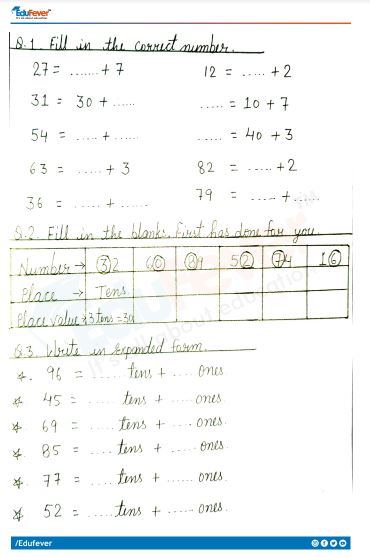 EduFever
It's all about education
Q.1. Fill in the correct number.
27 = ...... + 7 12 = ..... + 2
31 = 30 + ...... ..... = 10 + 7
54 = ..... + ...... ..... = 40 + 3
63 = ..... + 3 82 = ..... + 2
36 = ..... + ...... 79 = ..... + ....
Q.2. Fill in the blanks. First has done for you
Number → 32 60 84 52 74 16
Place → Tens
Place value → 3 tens = 30
Q.3. Write in expanded form.
96 = ..... tens + ..... ones.
45 = ..... tens + ..... ones.
69 = ..... tens + ..... ones.
85 = ..... tens + ..... ones.
77 = ..... tens + ...... ones.
52 = ..... tens + ..... ones.
/Edufever